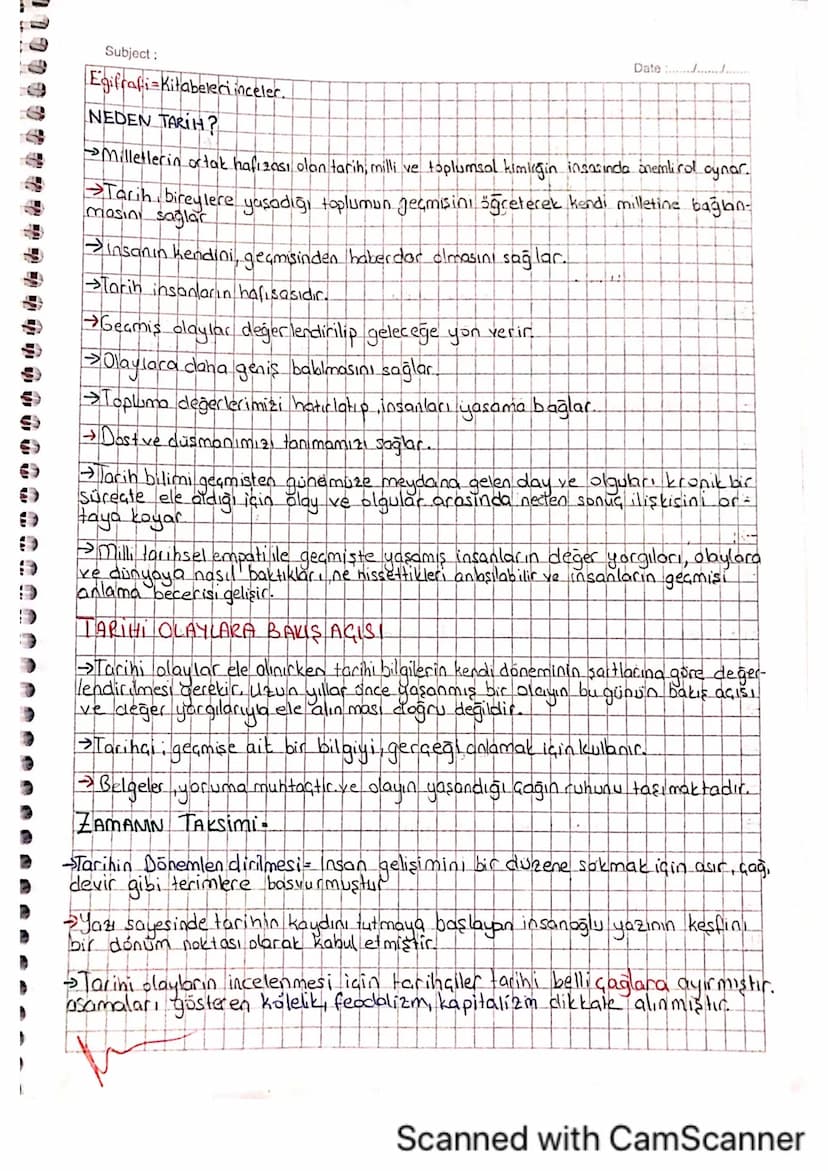 Subject :
Date :......./......./.......
Egifrafi=Kitabeleri inceler.
NEDEN TARİH?
→Milletlerin ortak hafızası olan tarih, milli ve toplumsal kimliğin inşasında önemli rol oynar.
→Tarih, bireylere yaşadığı toplumun geçmişini öğreterek kendi milletine bağlan-
masını sağlar
→insanın kendini, geçmişinden haberdar olmasını sağlar.
→Tarih insanların hafısasıdır.
→Geçmiş olaylar değerlendirilip geleceğe yön verir.
→Olaylara daha geniş bakılmasını sağlar.
→Topluma değerlerimizi hatırlatıp, insanları yaşama bağlar.
→Dost ve düşmanımızı tanımamızı sağlar.
→Tarih bilimi geçmişten günümüze meydana gelen olay ve olguları kronik bir
süreçte ele aldığı için olay ve olgular arasında neden sonuç ilişkisini or=
taya koyar
→Milli tarihsel empati ile geçmişte yaşamış insanların değer yargıları, olaylara
ve dünyaya nasıl baktıkları, ne hissettikleri anlaşılabilir ve insanların geçmişi
anlama becerisi gelişir.
TARİHİ OLAYLARA BAKIŞ AÇISI
→Tarihi olaylar ele alınırken tarihi bilgilerin kendi döneminin şartlarına göre değer-
lendirilmesi gerekir. Uzun yıllar önce yaşanmış bir olayın bu günün bakış açısı
ve değer yargılarıyla ele alınması doğru değildir.
→Tarihçi; geçmişe ait bir bilgiyi, gerçeği anlamak için kullanır.
→Belgeler, yoruma muhtaçtır. ve olayın yaşandığı çağın ruhunu taşımaktadır.
ZAMANIN TAKSİMİ=
→Tarihin Dönemlendirilmesi= İnsan gelişimini bir düzene sokmak için asır, çağ,
devir gibi terimlere başvurmuştur
→Yazı sayesinde tarihin kaydını tutmaya başlayan insanoğlu yazının keşfini
bir dönüm noktası olarak kabul etmiştir.
→Tarihi olayların incelenmesi için tarihçiler tarihi belli çağlara ayırmıştır.
aşamaları gösteren kölelik, feodalizm, kapitalizm dikkate alınmıştır.
Scanned with CamScanner